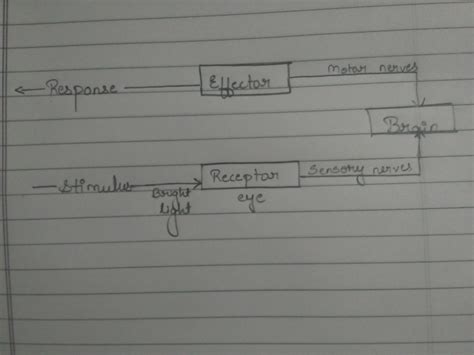 Response
Effector
Motar nerves
Brain
Stimulus
Bright
light
Receptar
eye
Sensory nerves